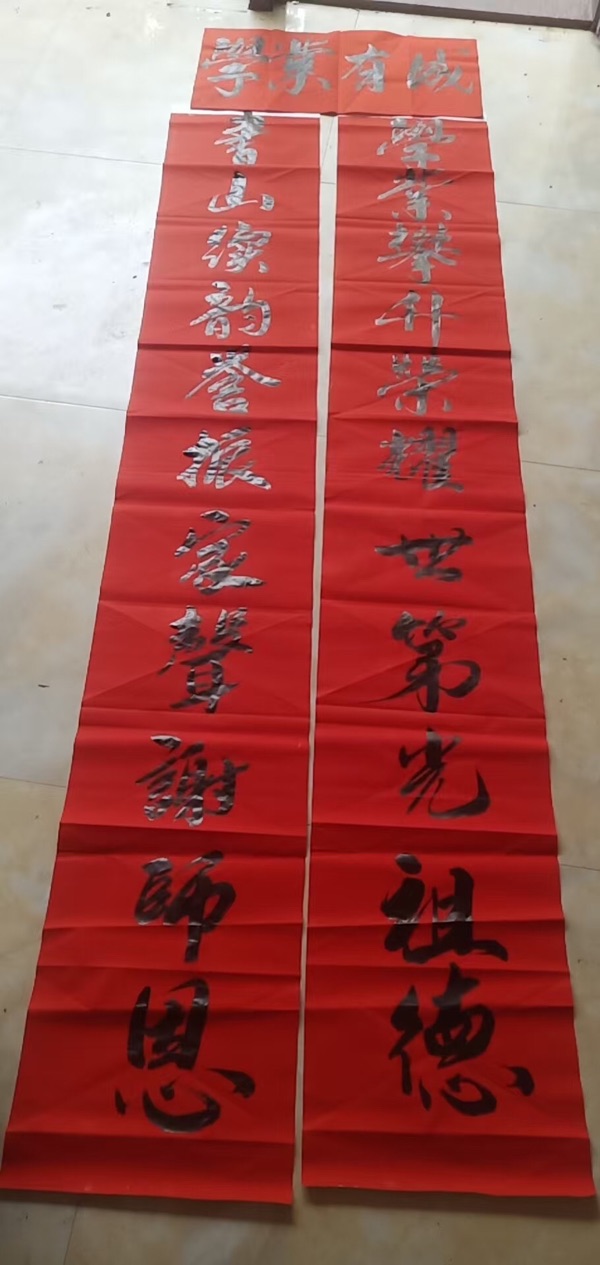 學業有成
學業攀升榮耀世第光祖德
書山續韵譽振家聲謝師恩